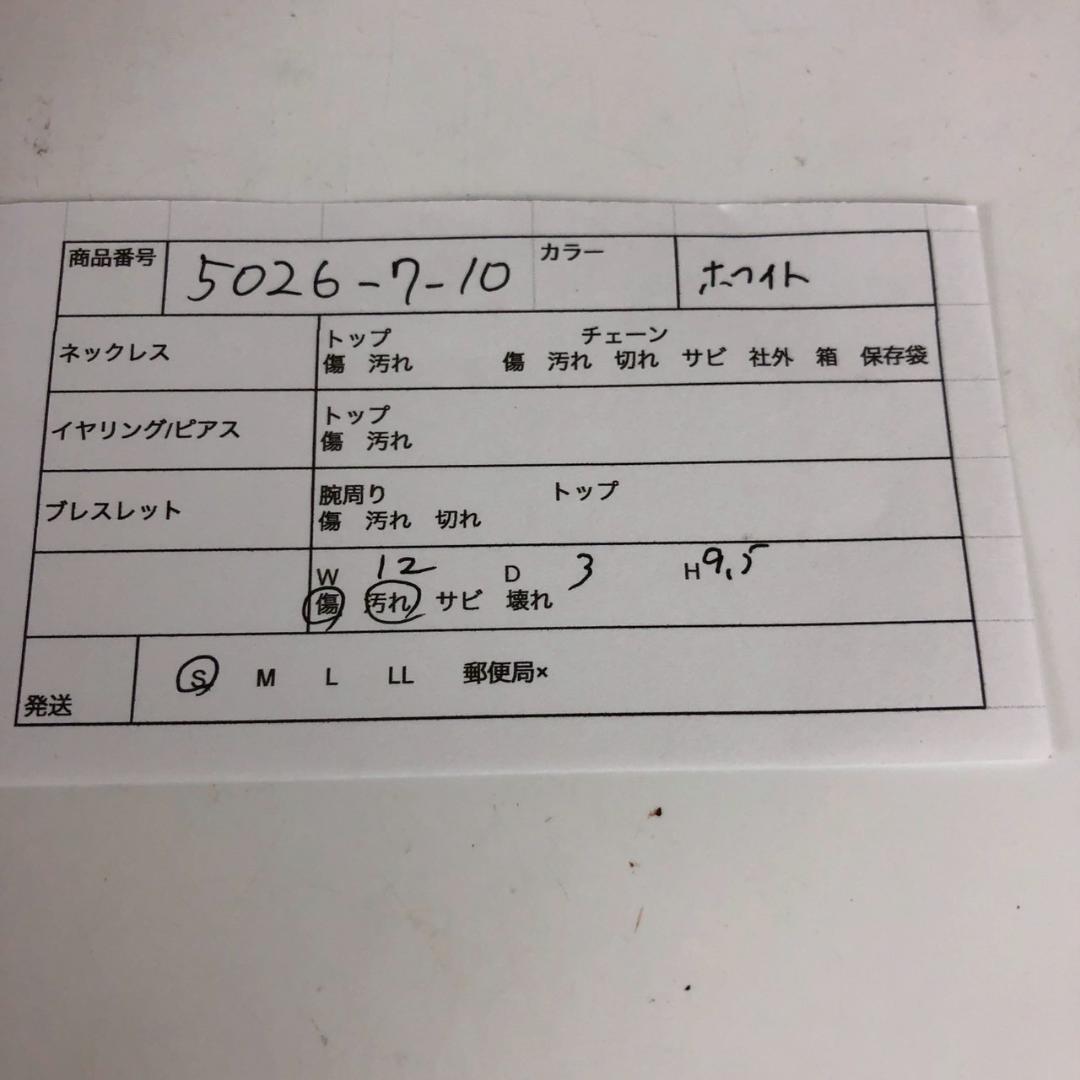 商品番号 5026-7-10 カラー ホワイト
ネックレス
トップ チェーン
傷 汚れ 傷 汚れ 切れ サビ 社外 箱 保存袋
イヤリング/ピアス
トップ
傷 汚れ
ブレスレット
腕周り トップ
傷 汚れ 切れ
W 12 D 3 H 9.5
傷 汚れ サビ 壊れ
発送 S M L LL 郵便局×